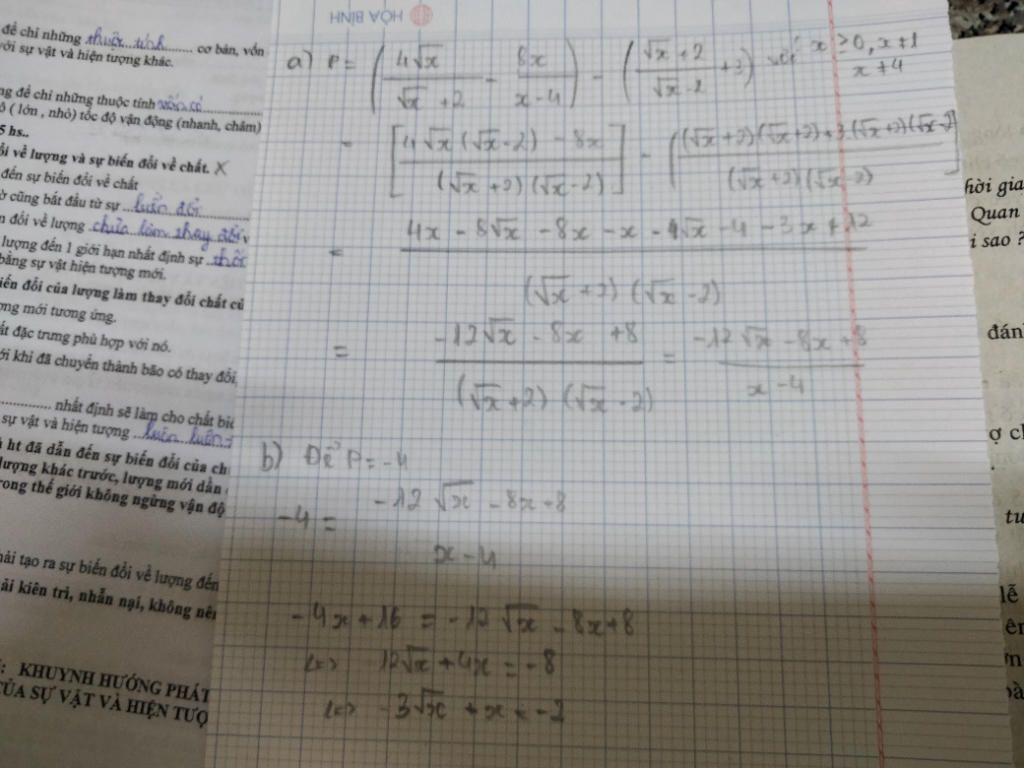 HÒA BÌNH
để chỉ những thuộc tính ........ cơ bản, vốn
với sự vật và hiện tượng khác.
ng để chỉ những thuộc tính vốn có
độ ( lớn , nhỏ) tốc độ vận động (nhanh, chậm)
5 hs..
đổi về lượng và sự biến đổi về chất. X
đến sự biến đổi về chất
cũng bắt đầu từ sự ... biến đổi
n đổi về lượng chưa làm thay đổi
lượng đến 1 giới hạn nhất định sự
bằng sự vật hiện tượng mới.
iến đổi của lượng làm thay đổi chất củ
ợng mới tương ứng.
ất đặc trưng phù hợp với nó.
ới khi đã chuyển thành bão có thay đổi
............ nhất định sẽ làm cho chất biế
sự vật và hiện tượng ... luôn luôn
ht đã dẫn đến sự biến đổi của ch
lượng khác trước, lượng mới dần
rong thế giới không ngừng vận độ
hải tạo ra sự biến đổi về lượng đến
ải kiên trì, nhẫn nại, không nên
: KHUYNH HƯỚNG PHÁT
CỦA SỰ VẬT VÀ HIỆN TƯỢ
a) P = (4√x/(√x + 2) - 8x/(x - 4)) - ((√x + 2)/(√x - 2) + 3) với x ≥ 0, x ≠ 1 x ≠ 4
= [(4√x (√x - 2) - 8x)/((√x + 2)(√x - 2))] - [((√x + 2)(√x + 2) + 3(√x + 2)(√x - 2))/((√x + 2)(√x - 2))]
= (4x - 8√x - 8x - x - 4√x - 4 - 3x + 12)/((√x + 2)(√x - 2))
= (-12√x - 8x + 8)/((√x + 2)(√x - 2)) = (-12√x - 8x + 8)/(x - 4)
b) Để P = -4
-4 = (-12√x - 8x + 8)/(x - 4)
-4x + 16 = -12√x - 8x + 8
<=> 12√x + 4x = -8
<=> 3√x + x = -2
hời gia
Quan
i sao ?
đán
ợ ch
tu
lẽ